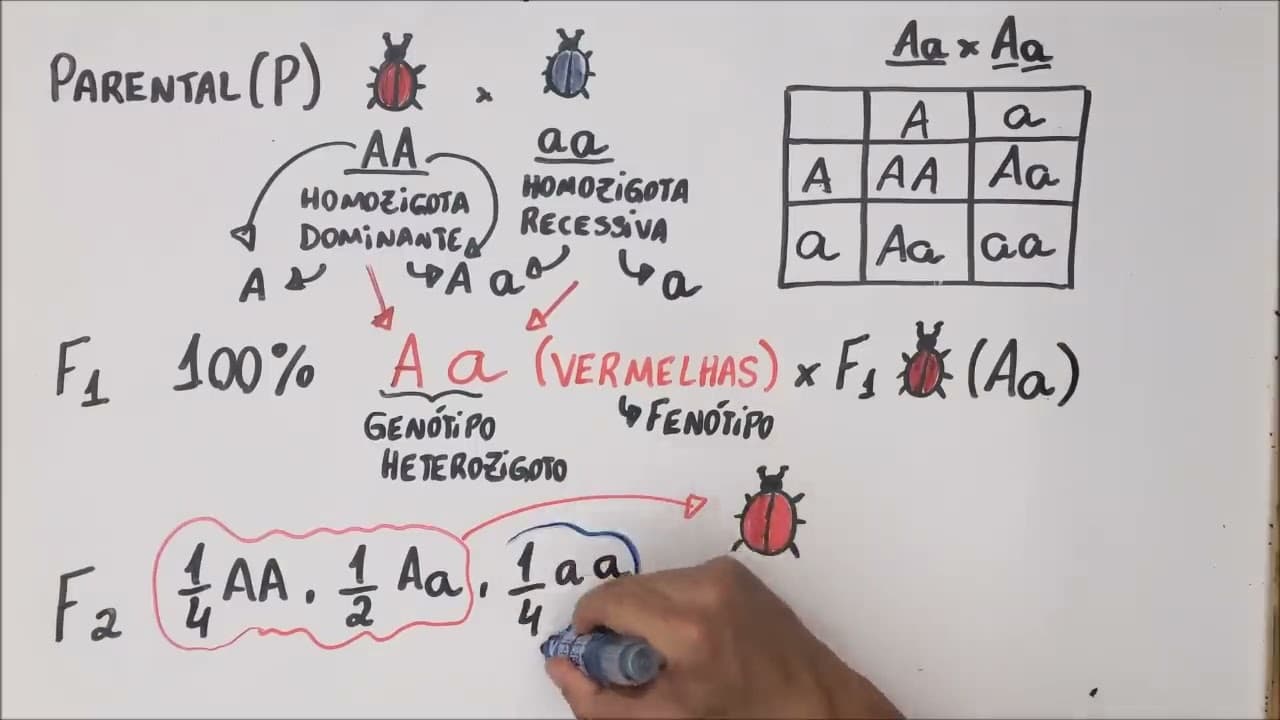 PARENTAL (P) x
AA aa
HOMOZIGOTA DOMINANTE
HOMOZIGOTA RECESSIVA
A A a a
F1 100% Aa (VERMELHAS) x F1 (Aa)
GENÓTIPO
HETEROZIGOTO
FENÓTIPO
F2 1/4 AA . 1/2 Aa . 1/4 aa
Aa x Aa
A a
A AA Aa
a Aa aa